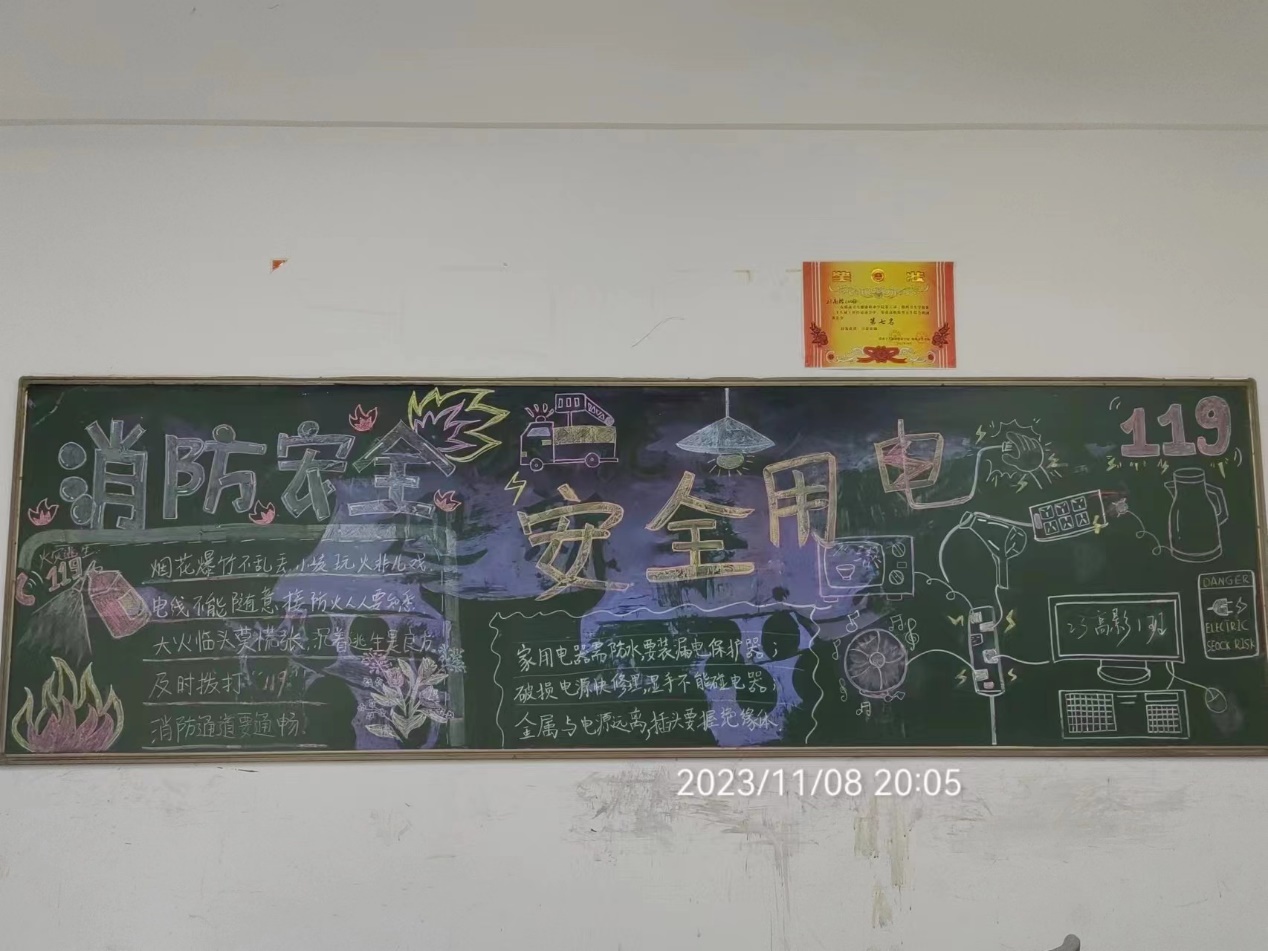 奖状
第七名
消防安全
安全用电
119
火灾
119
烟花爆竹不乱丢 小孩玩火非儿戏
电线不能随意接 防火人人要知悉
大火临头莫慌张 沉着逃生是良方
及时拨打"119"
消防通道要通畅
家用电器需防水,要装漏电保护器;
破损电源快修理,湿手不能碰电器;
金属与电源远离,插头要握绝缘体.
23高影1班
DANGER
ELECTRIC
SEOCK RISK
2023/11/08 20:05